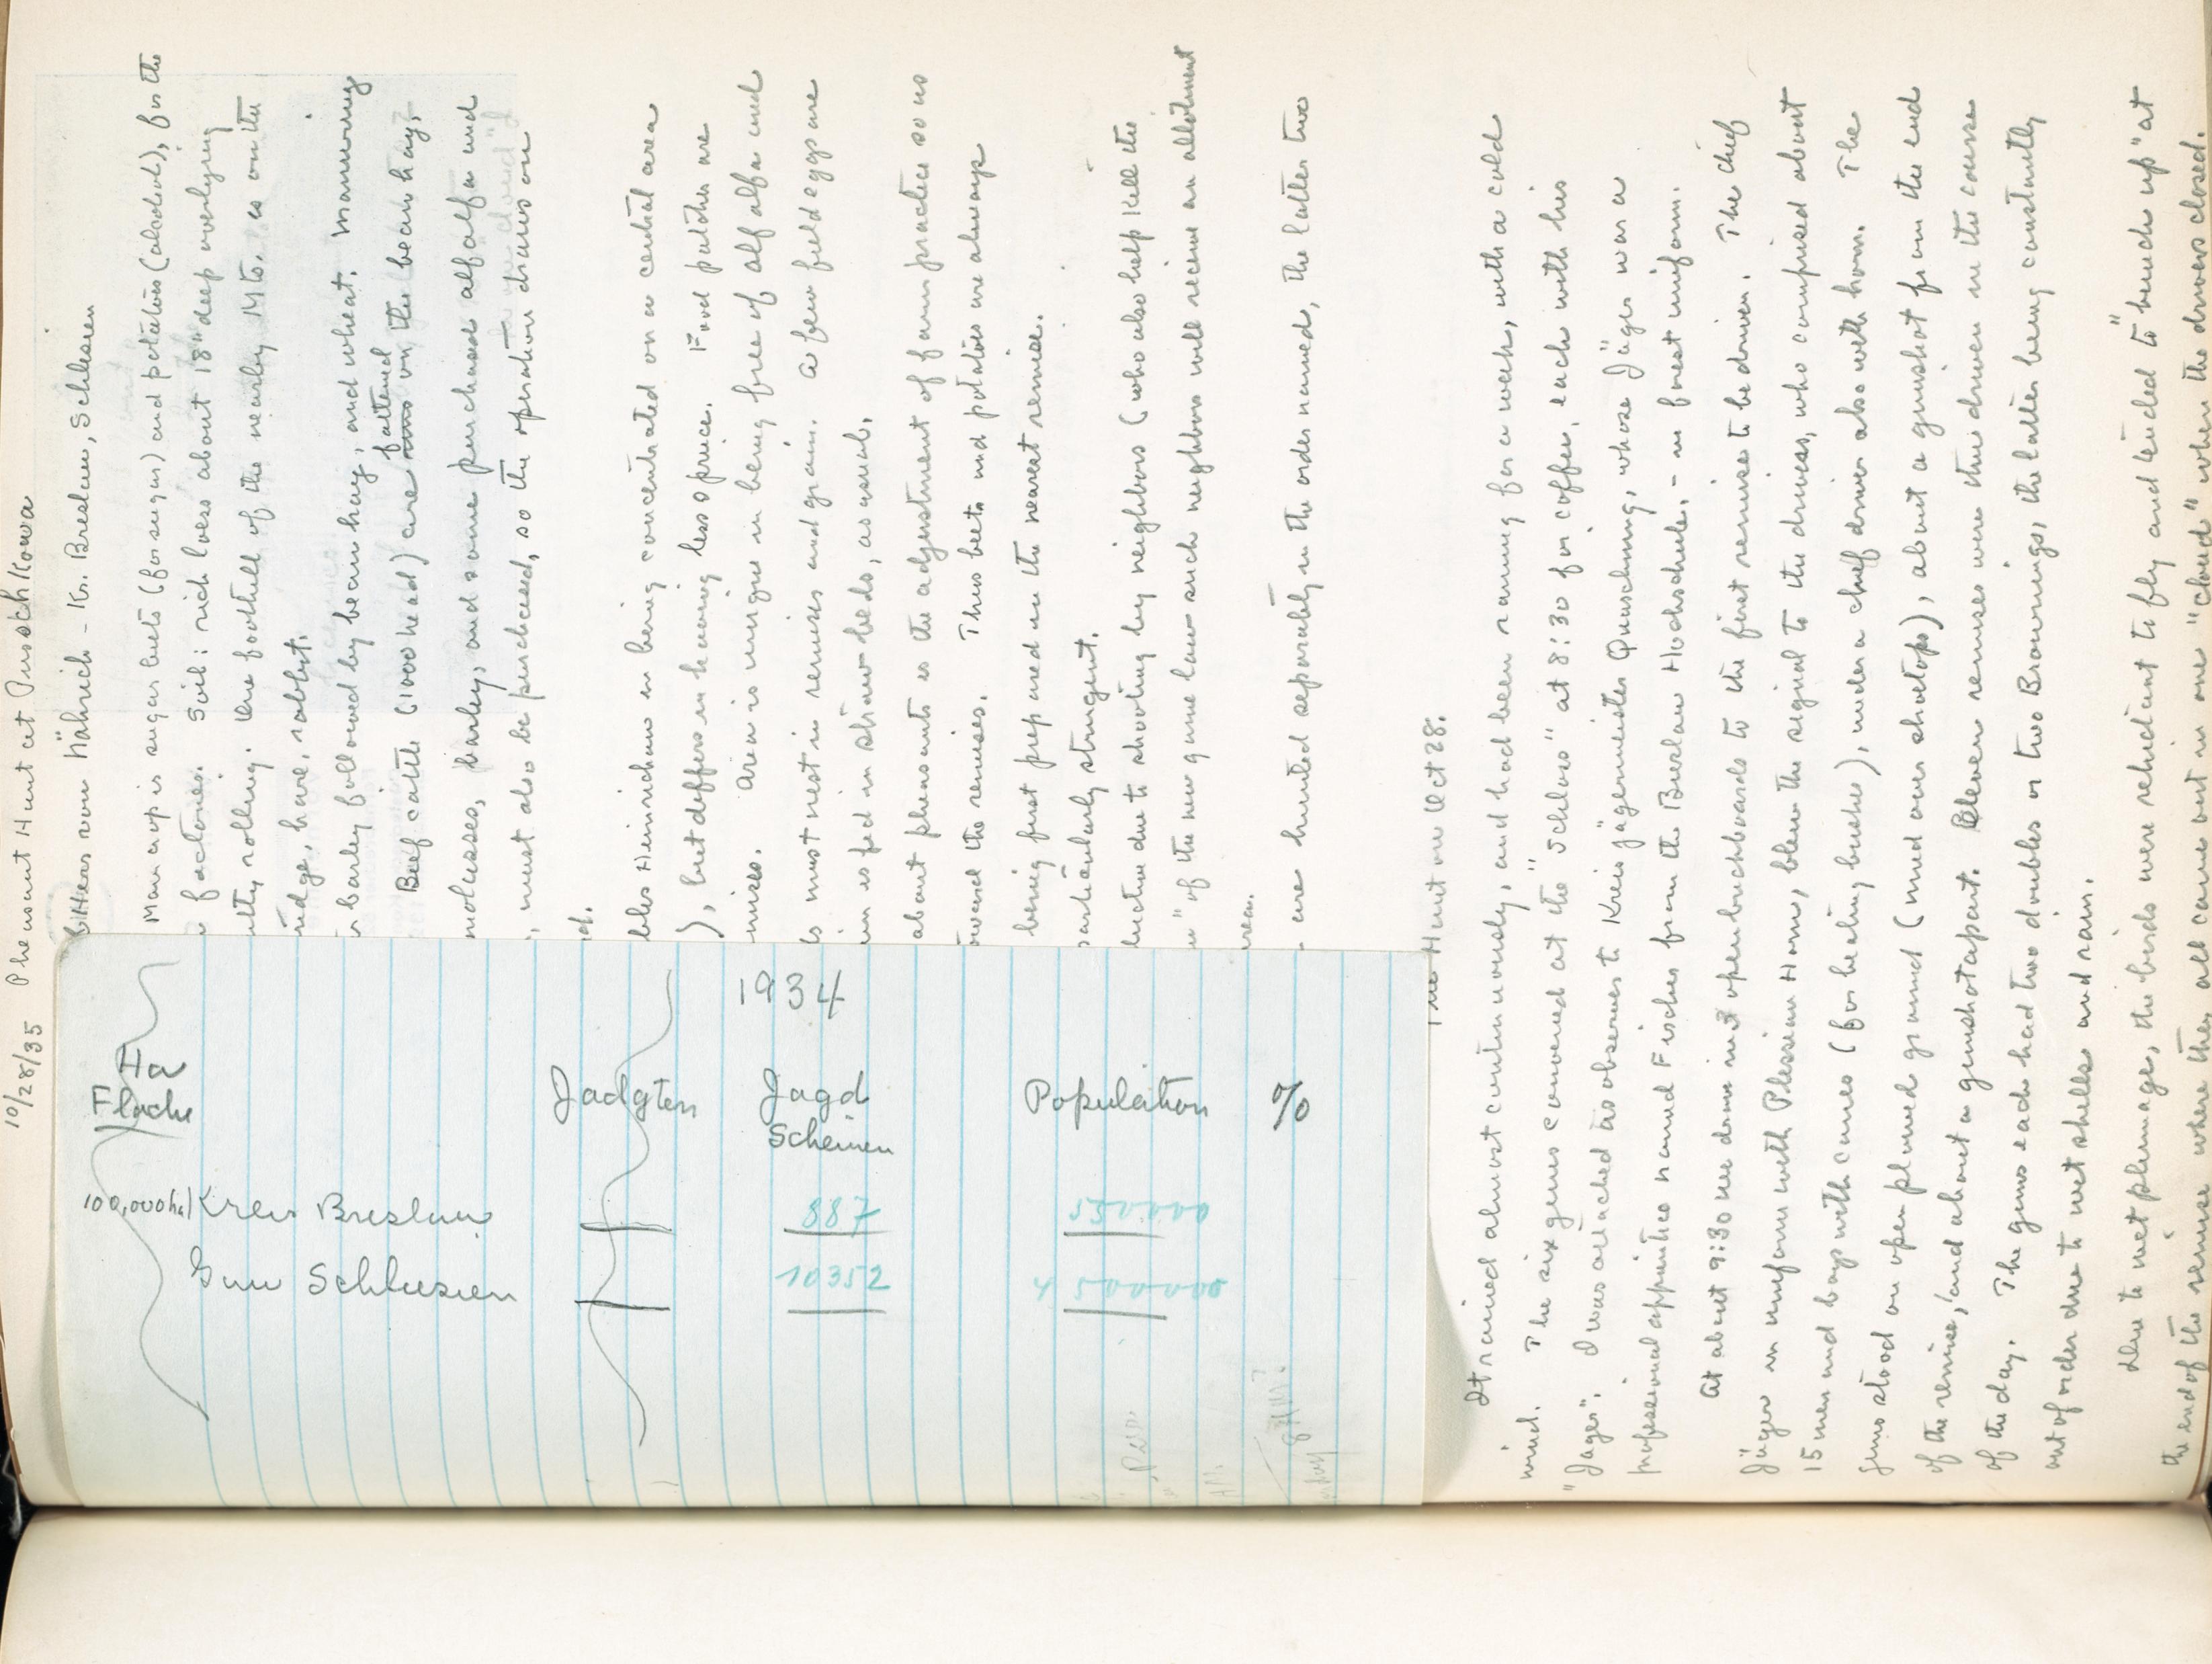 10/28/35 Pheasant Hunt at Puschkowa
von Kähnich - Kr. Breslau, Schlesien
Main crop is sugar beets (for sugar) and potatoes (alcohol), for the
factories. Soil: rich loess about 18" deep overlying
rolling. One foothill of the nearby Mts. is on the
hare, rabbit.
barley followed by bean hay, and wheat. Manuring
fattened
Beef cattle (1000 head) are on the bean hay,
molasses, barley, and some purchased alfalfa and
must also be purchased, so the operation draws on
Heinrichau in being concentrated on a central area
), but differs in having less spruce. Food patches are
Area is unique in being free of alfalfa and
must nest in remises and grain. A few field eggs are
is fed in straw beds, as usual.
about pheasants is the adjustment of farm practice so as
toward the remises. Thus beets and potatoes are always
being first prepared on the nearest remise.
particularly stringent.
due to shooting by neighbors (who also help kill the
" of the new game law such neighbors will receive an allotment
area.
are hunted separately in the order named, the latter two
The Hunt on Oct 28.
It rained almost continuously, and had been raining for a week, with a cold
wind. The six guns convened at the "Schloss" at 8:30 for coffee, each with his
"Jäger". I was attached as observer to Kreisjägermeister Quaschning, whose Jäger was a
professional apprentice named Fischer from the Breslau Hochschule, - in forest uniform.
At about 9:30 we drove in 3 open buckboards to the first remise to be driven. The chief
Jäger in uniform with Plessian Horn, blew the signal to the drivers, who comprised about
15 men and boys with canes (for beating bushes), under a chief driver also with horn. The
guns stood on open plowed ground (mud over shoetops), about a gunshot from the end
of the remise, and about a gunshot apart. Eleven remises were thus driven in the course
of the day. The guns each had two doubles or two Brownings, the latter being constantly
out of order due to wet shells and rain.
Due to wet plumage, the birds were reluctant to fly and tended to "bunch up" at
the end of the remise where they all came out in one "cloud" when the drivers closed.
1934
Ha
Fläche
Jadgten
Jagd
Scheinen
Population
%
100,000ha) Kreis Breslau 887
Gau Schlesien 10352